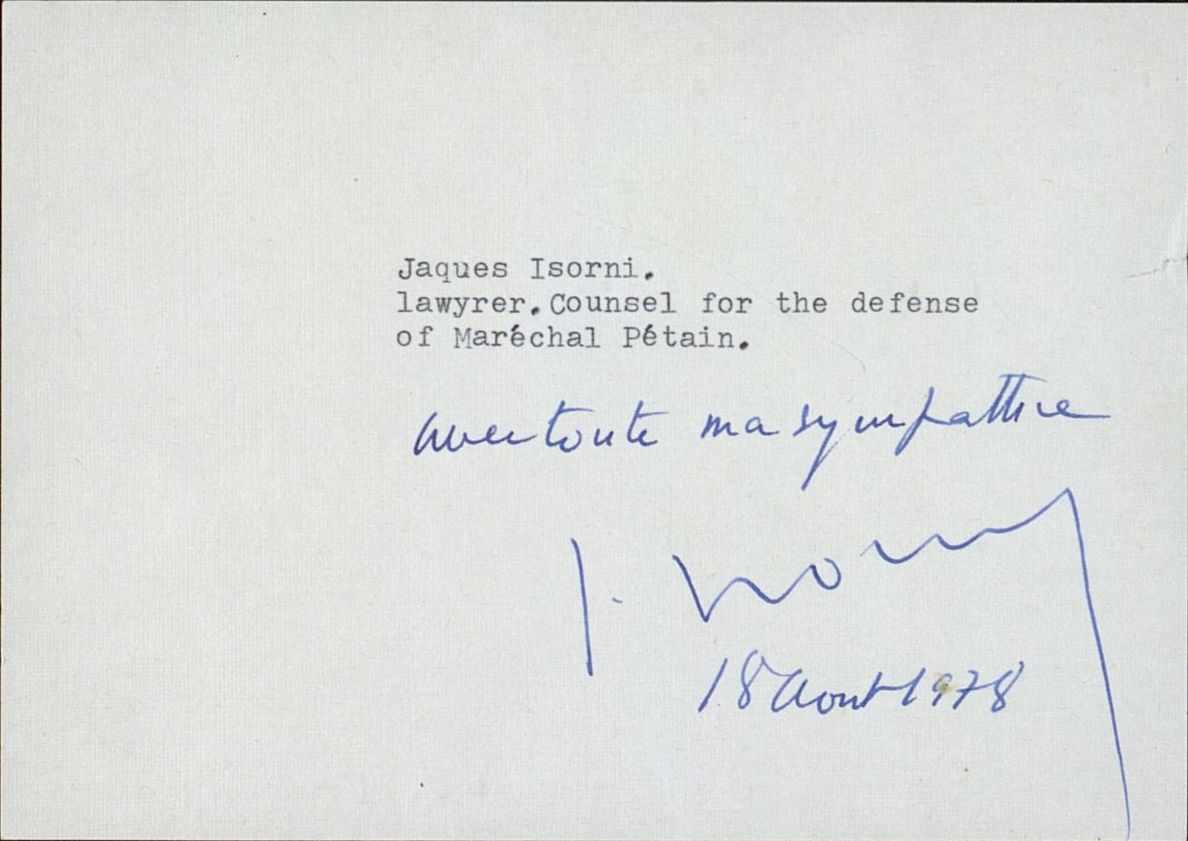 Jaques Isorni.
lawyrer.Counsel for the defense
of Maréchal Pétain.
avec toute ma sympathie
J. Isorni
18 Aout 1978